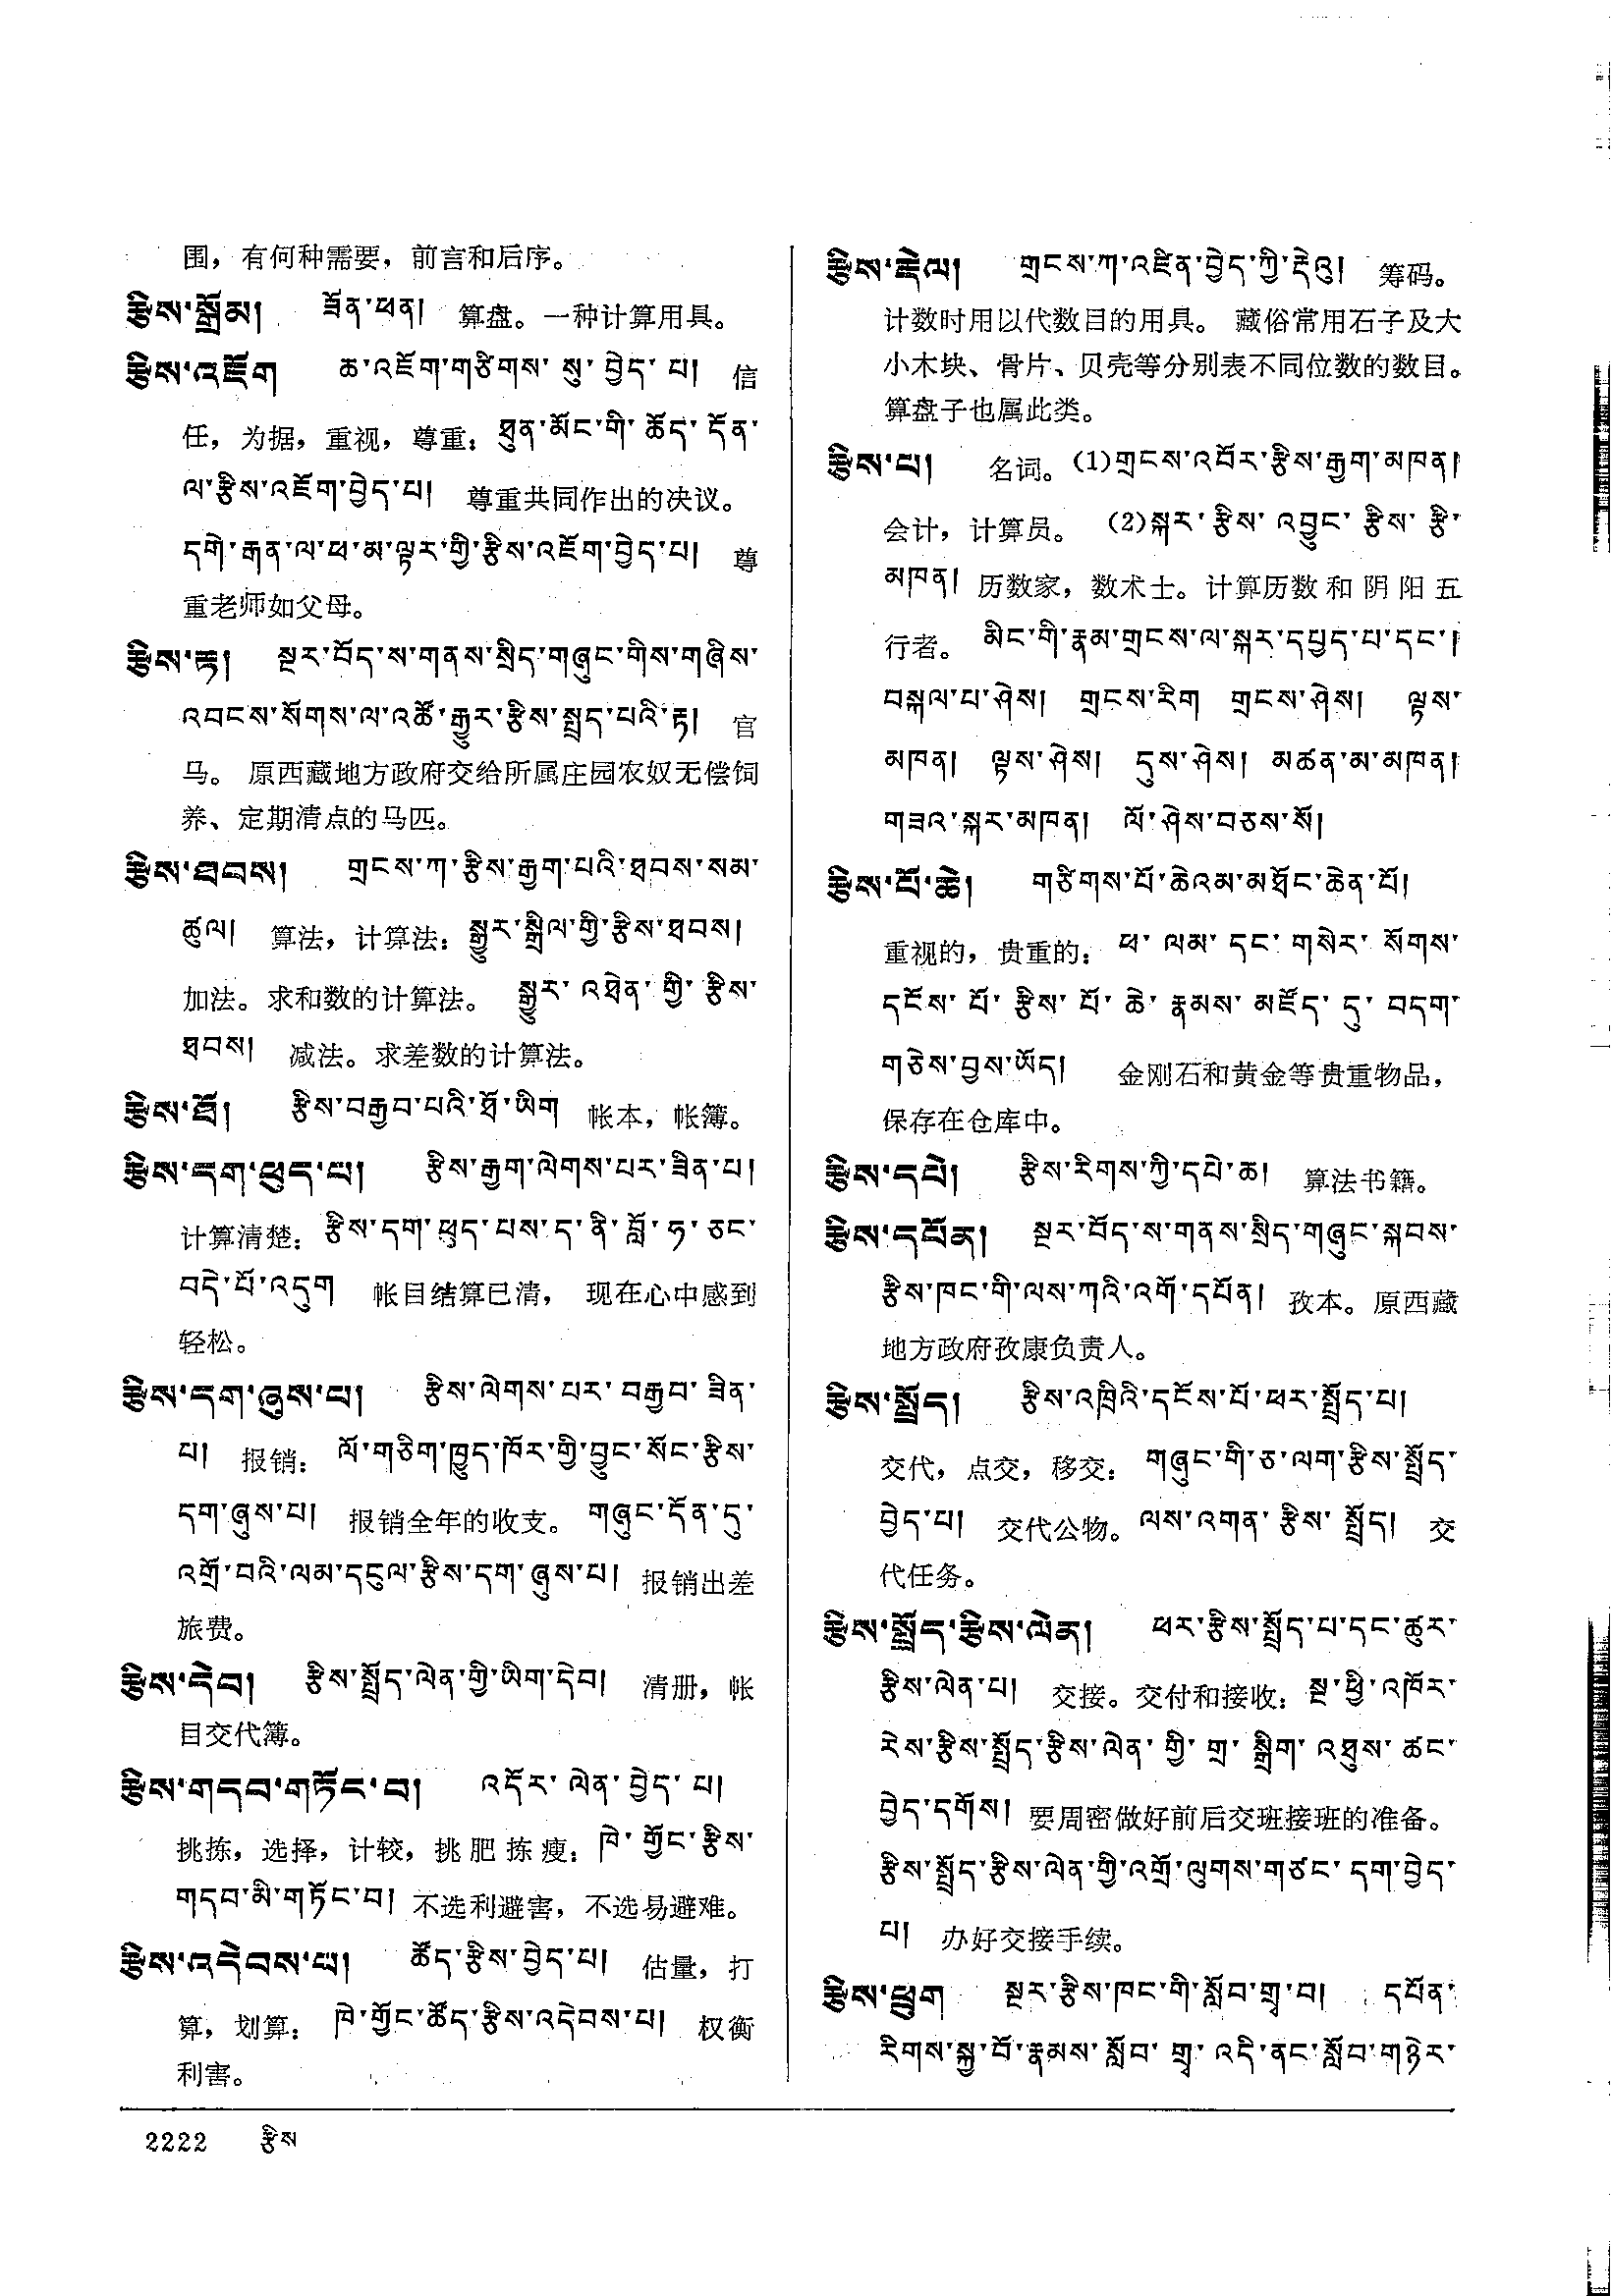 围，有何种需要，前言和后序。
རྩིས་སྒྲོམ། ཟོན་ཕན། 算盘。一种计算用具。
རྩིས་འཇོག ཆ་འཇོག་གཙིགས་སུ་བྱེད་པ། 信
任，为据，重视，尊重：ཐུན་མོང་གི་ཆོད་དོན་
ལ་རྩིས་འཇོག་བྱེད་པ། 尊重共同作出的决议。
དགེ་རྒན་ལ་ཕ་མ་ལྟར་གྱི་རྩིས་འཇོག་བྱེད་པ། 尊
重老师如父母。
རྩིས་རྟ། སྔར་བོད་ས་གནས་སྲིད་གཞུང་གིས་གཞིས་
འབངས་སོགས་ལ་འཚོ་རྒྱུར་རྩིས་སྤྲད་པའི་རྟ། 官
马。 原西藏地方政府交给所属庄园农奴无偿饲
养、定期清点的马匹。
རྩིས་ཐབས། གྲངས་ཀ་རྩིས་རྒྱག་པའི་ཐབས་སམ་
ཚུལ། 算法，计算法：སྒྱུར་སྒྲིལ་གྱི་རྩིས་ཐབས།
加法。求和数的计算法。 སྒྱུར་འཐེན་གྱི་རྩིས་
ཐབས། 减法。求差数的计算法。
རྩིས་ཐོ། རྩིས་བརྒྱབ་པའི་ཐོ་ཡིག 帐本，帐簿。
རྩིས་དག་ཕུད་པ། རྩིས་རྒྱག་ལེགས་པར་ཟིན་པ།
计算清楚：རྩིས་དག་ཕུད་པས་ད་ནི་བློ་ཧ་ཅང་
བདེ་པོ་འདུག 帐目结算已清， 现在心中感到
轻松。
རྩིས་དག་ཞུས་པ། རྩིས་ལེགས་པར་བརྒྱབ་ཟིན་
པ། 报销：ལོ་གཅིག་ཁྱུད་ཁོར་གྱི་བྱུང་སོང་རྩིས་
དག་ཞུས་པ། 报销全年的收支。 གཞུང་དོན་དུ་
འགྲོ་བའི་ལམ་དངུལ་རྩིས་དག་ཞུས་པ། 报销出差
旅费。
རྩིས་དེབ། རྩིས་སྤྲོད་ལེན་གྱི་ཡིག་དེབ། 清册，帐
目交代簿。
རྩིས་གདབ་གཏོང་བ། འདོར་ལེན་བྱེད་པ།
挑拣，选择，计较，挑肥拣瘦：ཁེ་གྱོང་རྩིས་
གདབ་མི་གཏོང་བ། 不选利避害，不选易避难。
རྩིས་འདེབས་པ། ཚོད་རྩིས་བྱེད་པ། 估量，打
算，划算：ཁེ་གྱོང་ཚོད་རྩིས་འདེབས་པ། 权衡
利害。
རྩིས་རྡེལ། གྲངས་ཀ་འཛིན་བྱེད་ཀྱི་རྡེའུ། 筹码。
计数时用以代数目的用具。 藏俗常用石子及大
小木块、骨片、贝壳等分别表不同位数的数目。
算盘子也属此类。
རྩིས་པ། 名词。(1)གྲངས་འབོར་རྩིས་རྒྱག་མཁན།
会计，计算员。 (2)སྐར་རྩིས་འབྱུང་རྩིས་རྩི་
མཁན། 历数家，数术士。计算历数和阴阳五
行者。 མིང་གི་རྣམ་གྲངས་ལ་སྐར་དཔྱད་པ་དང་།
བསྐལ་པ་ཤེས། གྲངས་རིག གྲངས་ཤེས། ལྟས་
མཁན། ལྟས་ཤེས། དུས་ཤེས། མཚན་མ་མཁན།
གཟའ་སྐར་མཁན། ལོ་ཤེས་བཅས་སོ།
རྩིས་པོ་ཆེ། གཙིགས་པོ་ཆེའམ་མཐོང་ཆེན་པོ།
重视的，贵重的：ཕ་ལམ་དང་གསེར་སོགས་
དངོས་པོ་རྩིས་པོ་ཆེ་རྣམས་མཛོད་དུ་བདག་
གཅེས་བྱས་ཡོད། 金刚石和黄金等贵重物品，
保存在仓库中。
རྩིས་དཔེ། རྩིས་རིགས་ཀྱི་དཔེ་ཆ། 算法书籍。
རྩིས་དཔོན། སྔར་བོད་ས་གནས་སྲིད་གཞུང་སྐབས་
རྩིས་ཁང་གི་ལས་ཀའི་འགོ་དཔོན། 孜本。原西藏
地方政府孜康负责人。
རྩིས་སྤྲོད། རྩིས་འཁྲིའི་དངོས་པོ་ཕར་སྤྲོད་པ།
交代，点交，移交：གཞུང་གི་ཅ་ལག་རྩིས་སྤྲོད་
བྱེད་པ། 交代公物。ལས་འགན་རྩིས་སྤྲོད། 交
代任务。
རྩིས་སྤྲོད་རྩིས་ལེན། ཕར་རྩིས་སྤྲོད་པ་དང་ཚུར་
རྩིས་ལེན་པ། 交接。交付和接收：སྔ་ཕྱི་འཁོར་
རེས་རྩིས་སྤྲོད་རྩིས་ལེན་གྱི་གྲ་སྒྲིག་འཐུས་ཚང་
བྱེད་དགོས། 要周密做好前后交班接班的准备。
རྩིས་སྤྲོད་རྩིས་ལེན་གྱི་འགྲོ་ལུགས་གཙང་དག་བྱེད་
པ། 办好交接手续。
རྩིས་ཕྲུག སྔར་རྩིས་ཁང་གི་སློབ་གྲྭ་བ། དཔོན་
རིགས་སྐྱ་བོ་རྣམས་སློབ་གྲྭ་འདི་ནང་སློབ་གཉེར་
2222 རྩིས